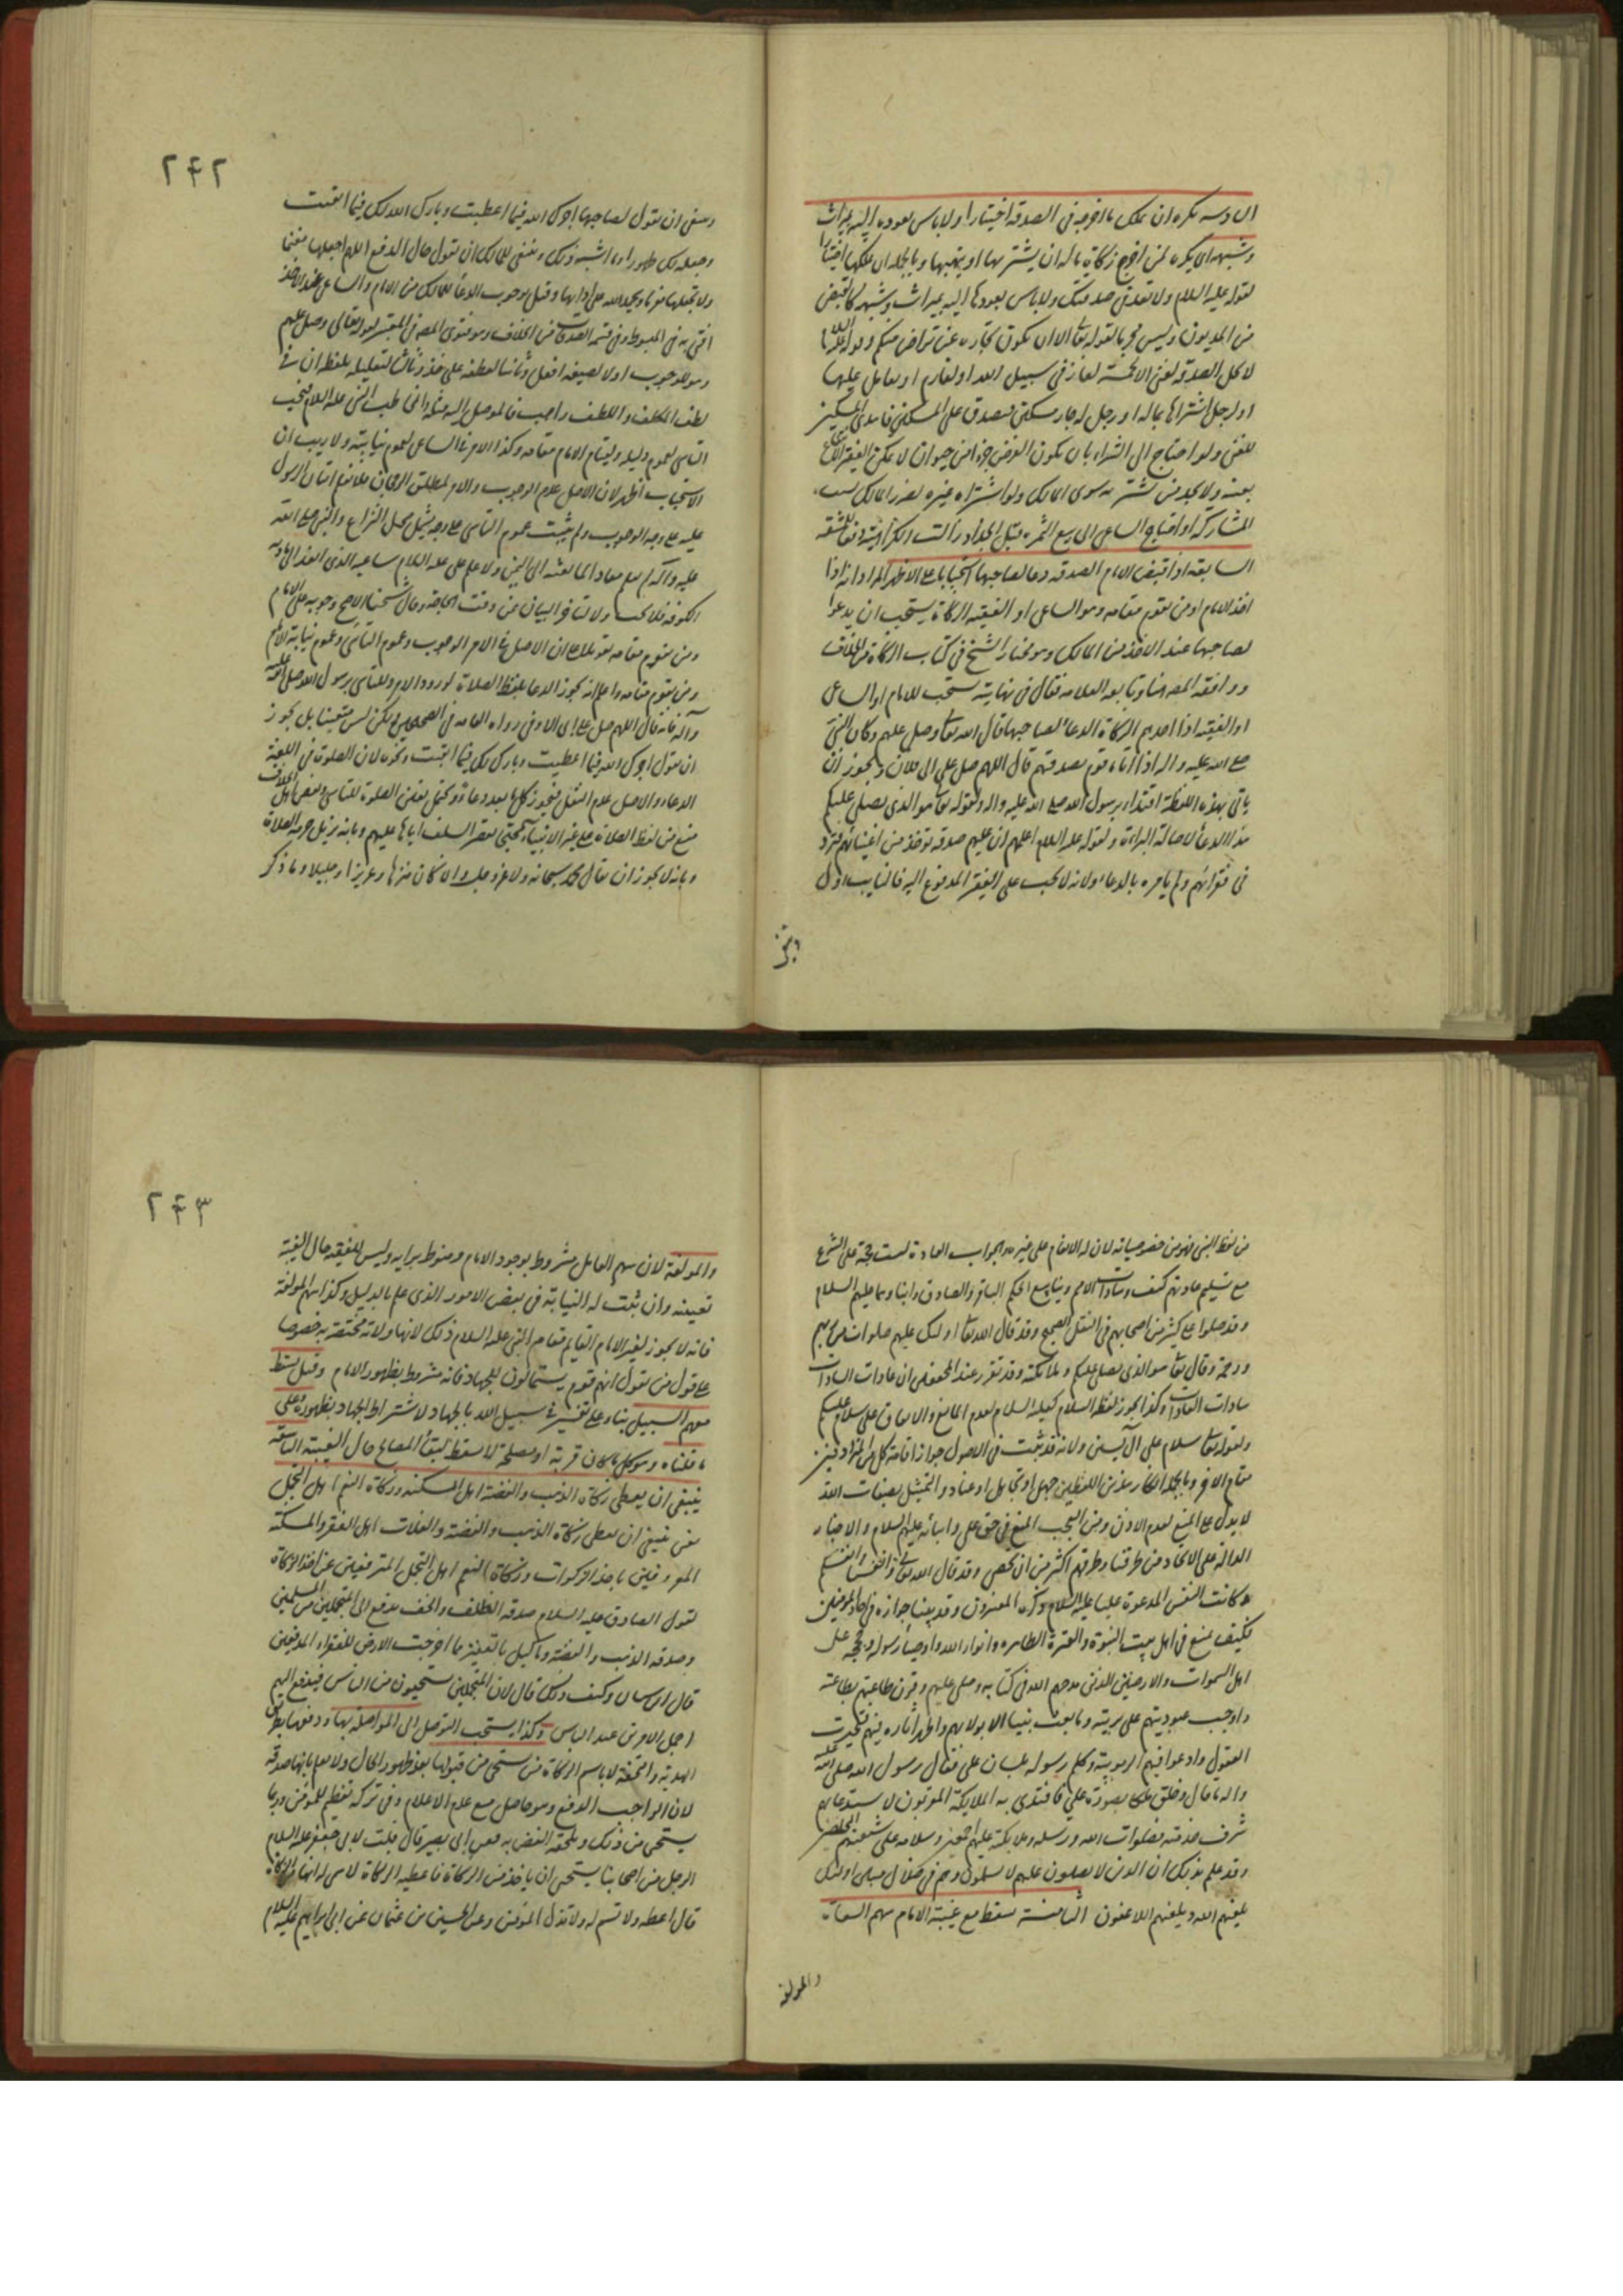 السادسة يكره ان يملك ما اخرجه في الصدقة اختيارا ولا باس بعوده اليه بميراث
وشبهه اي يكره لمن اخرج زكاة ماله ان يشتريها او يتهبها وبالجملة ان يملكها اختيارا
لقوله عليه السلام ولا تعد في صدقتك ولا باس بعودها اليه بميراث وشبهه كما لو قبض
من المديون وليس محرما لقوله تعالى الا ان يكون تجارة عن تراض منكم وقوله
لا تحل الصدقة لغني الا لخمسة لغاز في سبيل الله او لغارم او لعامل عليها
او لرجل اشتراها بماله او رجل له جار مسكين فتصدق على المسكين فاهدى المسكين
للغني ولو احتاج الى الشراء بان يكون الفرض جزءا من حيوان لا يمكن الفقير الانتفاع
بعينه ولا يجد من يشتريه سوى المالك ولو اشتراه غيره لضر المالك بسبب
المشاركة او احتاج الساعي الى بيع الثمرة قبل الجداد زالت الكراهية دفعا للمشقة
السابعة اذا قبض الامام الصدقة دعا لصاحبها استحبابا على الاظهر المراد انه اذا
اخذ الامام او من يقوم مقامه وهو الساعي او الفقيه الزكاة يستحب ان يدعو
لصاحبها عند الاخذ من المالك وهو مختار الشيخ في كتاب الزكاة من الخلاف
ووافقه المصنف هنا وتابعه العلامة فقال في نهايته يستحب للامام او الساعي
او الفقيه اذا اخذ الزكاة الدعاء لصاحبها قال الله تعالى وصل عليهم وكان النبي
صلى الله عليه واله اذا اتاه قوم بصدقتهم قال اللهم صل على ال فلان ويجوز ان
ياتي بهذه اللفظة اقتداء برسول الله صلى الله عليه واله ولقوله تعالى هو الذي يصلي عليكم
هذا الدعاء لاصالة البراءة ولقوله عليه السلام اعلمهم ان عليهم صدقة توخذ من اغنيائهم فترد
في فقرائهم ولم يامره بالدعاء ولانه لا يجب على الفقير المدفوع اليه فالنايب اولى
وينبغي
٢٤٢
وينبغي ان يقول لصاحبها اجرك الله فيما اعطيت وبارك الله لك فيما ابقيت
وجعله لك طهورا وما اشبه ذلك وينبغي للمالك ان يقول حال الدفع اللهم اجعلها مغنما
ولا تجعلها مغرما ويحمد الله على ادائها وقيل بوجوب الدعاء للمالك من الامام والساعي عند الاخذ
افتى به في المبسوط وفي قسمة الصدقات من الخلاف وهو فتوى المصنف في المعتبر لقوله تعالى وصل عليهم
وهو للوجوب اولا لصيغة افعل وثانيا لعطفه على خذ وثالثا لتعليله بلفظ ان في
لطف المكلف واللطف واجب فالموصل اليه مثله
التاسي لعموم دليله وليقام الامام مقامه وكذا الامر في الساعي لعموم نيابته ولا ريب ان
الاستحباب اظهر لان الاصل عدم الوجوب والامر لمطلق الرجحان فلا نمنع اتيان الرسول
عليه على وجه الوجوب ولم يثبت عموم التاسي على وجه يشمل محل النزاع والنبي صلى الله
عليه واله لم يعلم معاذا لما بعثه الى اليمن ولا علم علي عليه السلام ساعيه الذي انفذه الى بادية
الكوفة فلا يجب ولا لتاخر البيان عن وقت الحاجة وقال شيخنا الاصح وجوبه على الامام
ومن يقوم مقامه تعويلا على ان الاصل في الامر الوجوب وعموم التاسي وعموم نيابة الامام
ومن يقوم مقامه واعلم انه يجوز الدعاء بلفظ الصلاة لورود الامر وللتاسي برسول الله صلى الله عليه
وآله فانه قال اللهم صل على ال ابي اوفى رواه العامة في الصحيحين لكن ليس متعينا بل يجوز
ان يقول اجرك الله فيما اعطيت وبارك لك فيما ابقيت ونحوه لان الصلوة في اللغة
الدعاء والاصل عدم النقل فيجوز كل ما يعد دعاء ويحتمل تعين الصلوة للتاسي وبعض اهل الخلاف
منع من لفظ الصلاة على غير الانبياء محتجين بقصر السلف اياها عليهم وبانه يزيل حرمة الصلاة
وبانه لا يجوز ان يقال محمد سبحانه ولا عز وجل وان كان منزها وعزيزا وجليلا وما ذكر
من لفظ النبي فهو من خصوصياته لان له الانعام على غيره والجواب العادة ليست حجة على الشرع
مع تسليم عادتهم كيف وسادات الامم وينابيع الحكم الباقر والصادق وابناؤهما عليهم السلام
وقد صلوا على كثير من اصحابهم في النقل الصحيح وقد قال الله تعالى اولئك عليهم صلوات من ربهم
ورحمة وقال تعالى هو الذي يصلي عليكم وملائكته وقد تقرر عند المحققين ان عادات السادات
سادات العادات وكذا يجوز لفظ السلام كعليه السلام لعدم المانع والاتفاق على سلام عليكم
ولقوله تعالى سلام على آل يسين ولانه قد ثبت في الاصول جواز اقامة كل من المترادفين
مقام الاخر وبالجملة انكار هذين اللفظين جهل او تجاهل او عناد والتمثيل بصفات الله
لا يدل على المنع لعدم الاذن ومن العجب المنع في حق علي وابنائه عليهم السلام والاخبار
الدالة على الاتحاد من طرقنا وطرقهم اكثر من ان تحصى وقد قال الله تعالى وانفسنا وانفسكم
وكانت النفس المدعوة عليا عليه السلام ذكره المفسرون وقد بينا جوازه في احاد المؤمنين
فكيف يمنع في اهل بيت النبوة والعترة الطاهرة وانوار الله واوصياء رسوله وحججه على
اهل السموات والارضين الذين مدحهم الله في كتابه وصلى عليهم وقرن طاعتهم بطاعته
واوجب عبوديتهم على بريته وما بعث نبيا الا بولايهم واظهر اثاره فيهم فتحيرت
العقول وادعوا فيهم الربوبية وكلم رسوله بلسان علي فقال رسول الله صلى الله عليه
واله ما قال وخلق ملكا بصورة علي فاقتدى به الملايكة المقربون لاستدعائهم
شرف خدمته فصلوات الله ورسله وملايكته عليهم اجمعين وسلامه على شيعتهم المخلصين
وقد علم بذلك ان الذين لا يصلون عليهم لا يسلمون وهم في ضلال مبين اولئك
يلعنهم الله ويلعنهم اللاعنون الثامنة يسقط مع غيبة الامام سهم السعاة
والمولفة
٢٤٣
والمولفة لان سهم العامل مشروط بوجود الامام ومنوط برايه وليس للفقيه حال الغيبة
تعيينه وان ثبت له النيابة في بعض الامور الذي علم بالدليل وكذا سهم المولفة
فانه لا يجوز لغير الامام القايم مقام النبي عليه السلام ذلك لانها ولاية مختصة به خصوصا
على قول من يقول انهم قوم يستمالون للجهاد فانه مشروط بظهور الامام وقيل يسقط
سهم السبيل بناء على تفسير في سبيل الله بالجهاد لاشتراط الجهاد بظهوره وعلى
ما قلناه وهو كل ما كان قربة او مصلحة لا يسقط لبقاء المصالح حال الغيبة التاسعة
ينبغي ان يعطى زكاة الذهب والفضة اهل المسكنة وزكاة النعم اهل التجمل
يعني ينبغي ان يعطى زكاة الذهب والفضة والغلات اهل الفقر والمسكنة
المعروفين باخذ الزكوات وزكاة النعم اهل التجمل المترفعين عن اخذ الزكاة
لقول الصادق عليه السلام صدقة الظلف والخف تدفع الى المتجملين من المسلمين
وصدقة الذهب والفضة وما كيل بالقفيز مما اخرجت الارض للفقراء المدقعين
قال ابن سنان وكيف ذلك قال لان المتجملين يستحيون من الناس فيدفع اليهم
اجمل الامرين عند الناس وكذا يستحب التوصل الى المواصلة بها ودفعها بطريق
الهدية والتحفة لا باسم الزكاة من يستحي من قبولها بعد ظهور الحال ولا يعلم بانها صدقة
لان الواجب الدفع وهو حاصل مع عدم الاعلام وفي تركه تعظيم للمؤمن وربما
يستحي من ذلك ويلحقه الغض به فعن ابي بصير قال قلت لابي جعفر عليه السلام
الرجل من اصحابنا يستحي ان ياخذ من الزكاة فاعطيه الزكاة لا اسمي له انها من الزكاة
قال اعطه ولا تسم له ولا تذل المؤمن وعن الحسين بن عثمان عن ابي ابراهيم عليه السلام